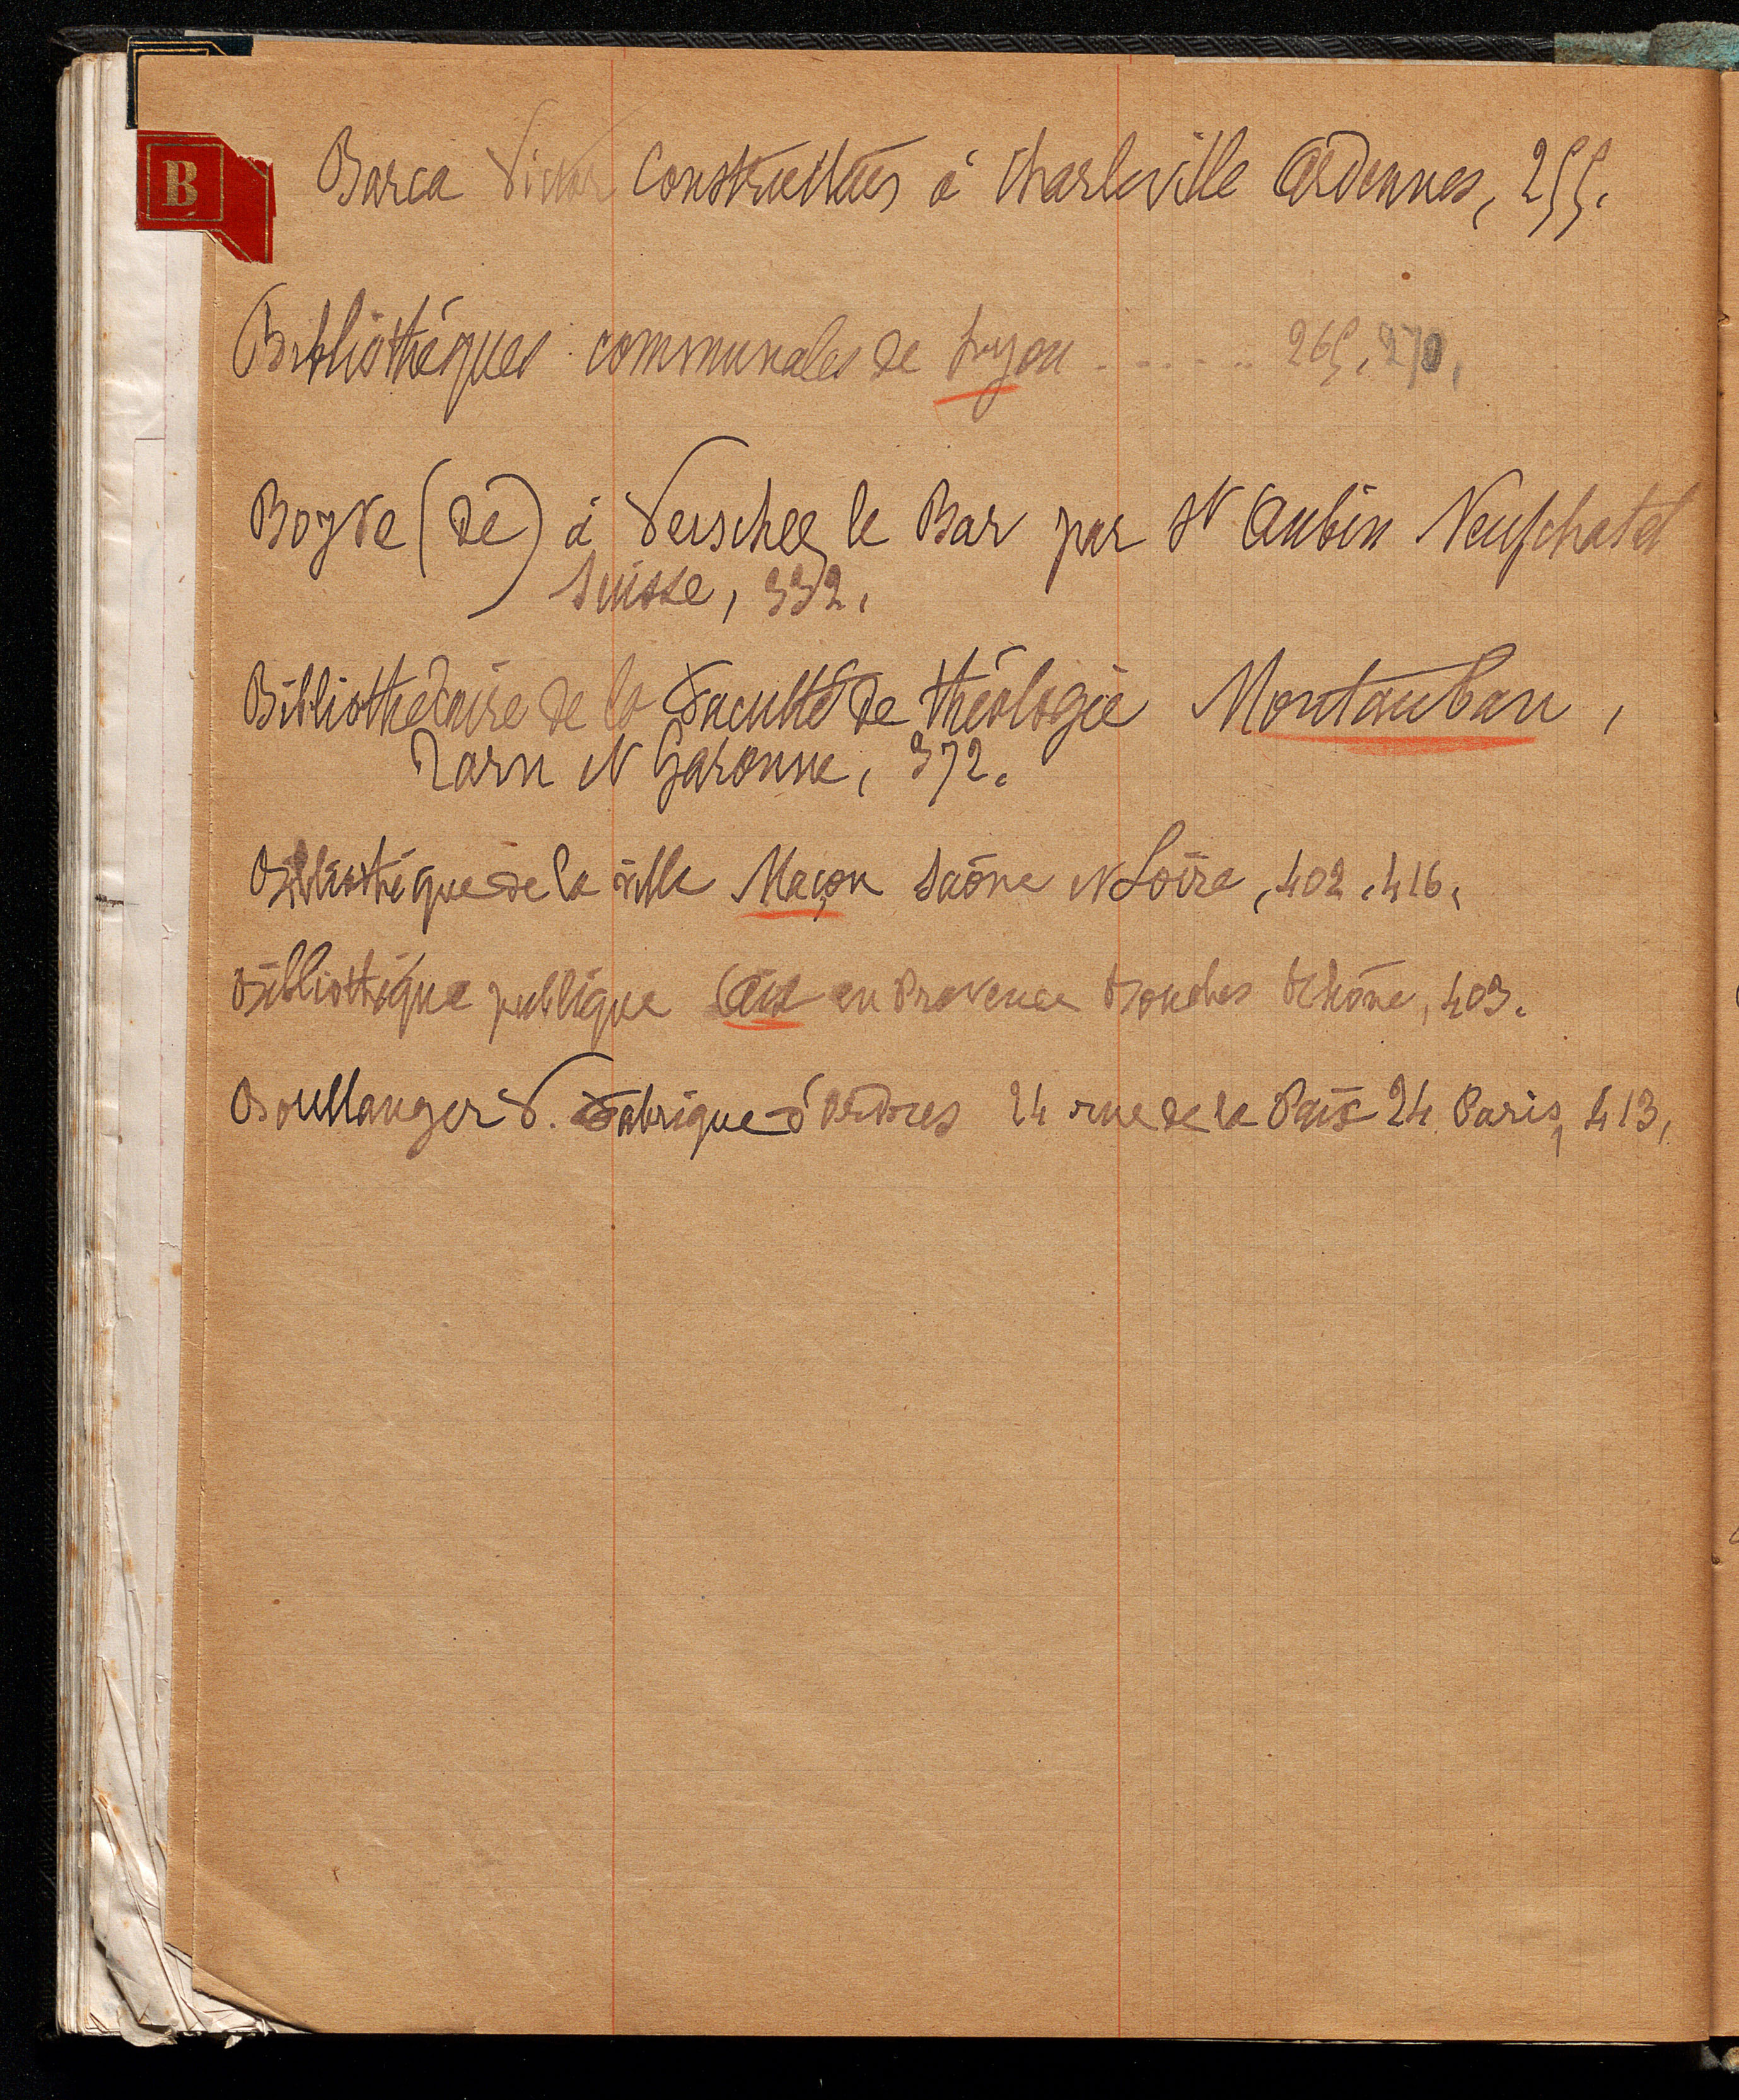 B
Barca Victor Constructeur à Charleville Ardennes, 255.
Bibliothéques communales de Lyon . . . . . . 265, 270,
Boyve (de) à Verschee le Bar par St Aubin Neufchatel
Suisse, 332,
Bibliothécaire de la Faculté de théologie Montauban,
Tarn et Garonne, 372.
Bibliothéque de la ville Maçon Saône et Loire, 402, 416,
Bibliothéque publique Aix en Provence Bouches Rhône, 403.
Boullanger V. Fabrique d'ordres 24 rue de la Paix 24 Paris, 413,